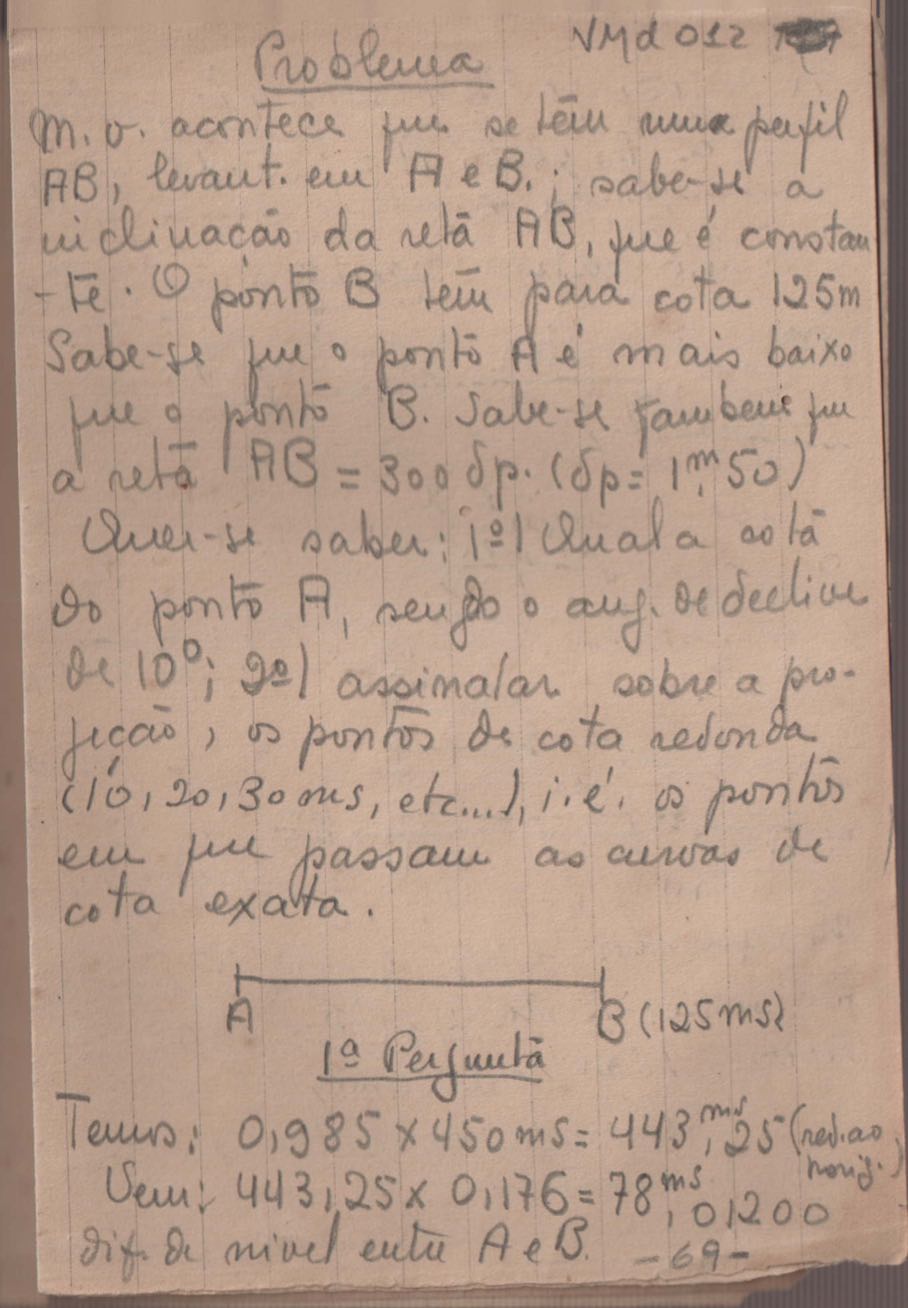 Problema VMd 012
M. v. acontece que se têm numa perfil
AB, levant. em A e B.; sabe-se a
inclinação da retā AB, que é constan
-te. O ponto B tem para cota 125m
Sabe-se que o ponto A é mais baixo
que o ponto B. Sabe-se tambem que
a reta AB = 300 dp. (dp = 1m,50)
Quer-se saber: 1º) Qual a cota
do ponto A, sendo o ang. de declive
de 10º; 2º) assinalar sobre a pro-
jeção, os pontos de cota redonda
(10, 20, 30 ms, etc...), i. é. os pontos
em que passam as curvas de
cota exata.
A B (125 ms)
1ª Pergunta
Temos: 0,985 x 450 ms = 443,ms25 (red. ao
horiz.)
Vem: 443,25 x 0,176 = 78ms,01200
dif. de nivel entre A e B. -69-